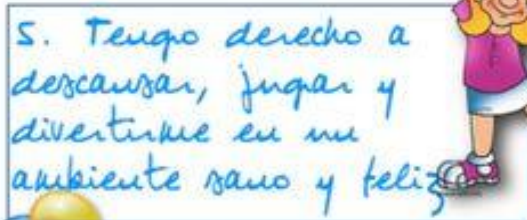 5. Tengo derecho a
descansar, jugar y
divertirme en un
ambiente sano y feliz